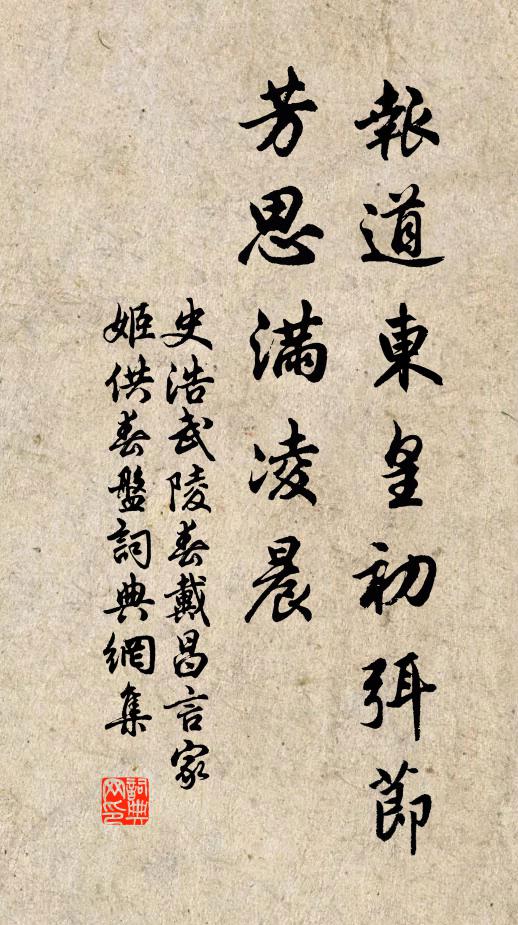 報道東皇初弭節
芳思滿凌晨
史浩武陵春戴昌言家
姬供春盤詞典網集
詞典网印